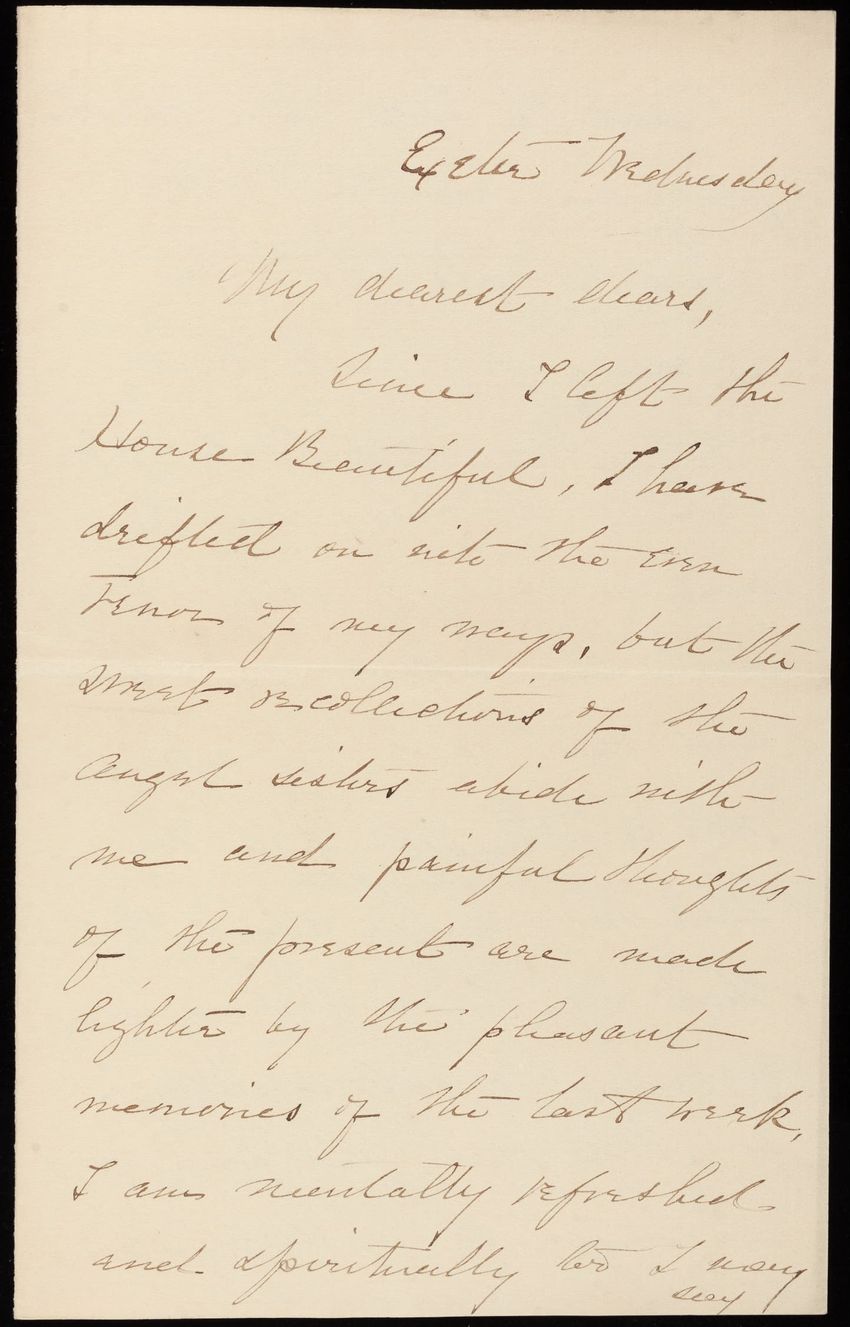 Exeter Wednesday
My dearest dears,
Since I left the
House Beautiful, I have
drifted on into the even
tenor of my ways, but the
sweet recollections of the
august sisters abide with
me and painful thoughts
of the present are made
lighter by the pleasant
memories of the last week,
I am mentally refreshed
and spiritually too I may
say